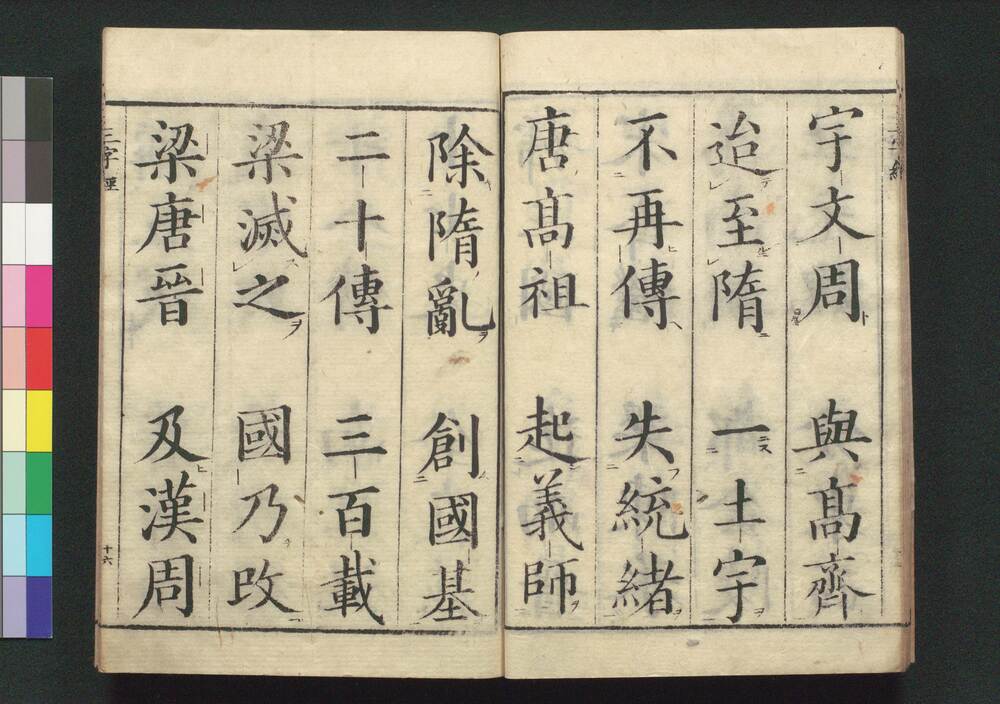 宇文周 與髙齊
迨至隋 一土宇
不再傳 失統緒
唐髙祖 起義師
除隋亂 創國基
二十傳 三百載
梁滅之 國乃改
梁唐晉 及漢周
三字經
十六